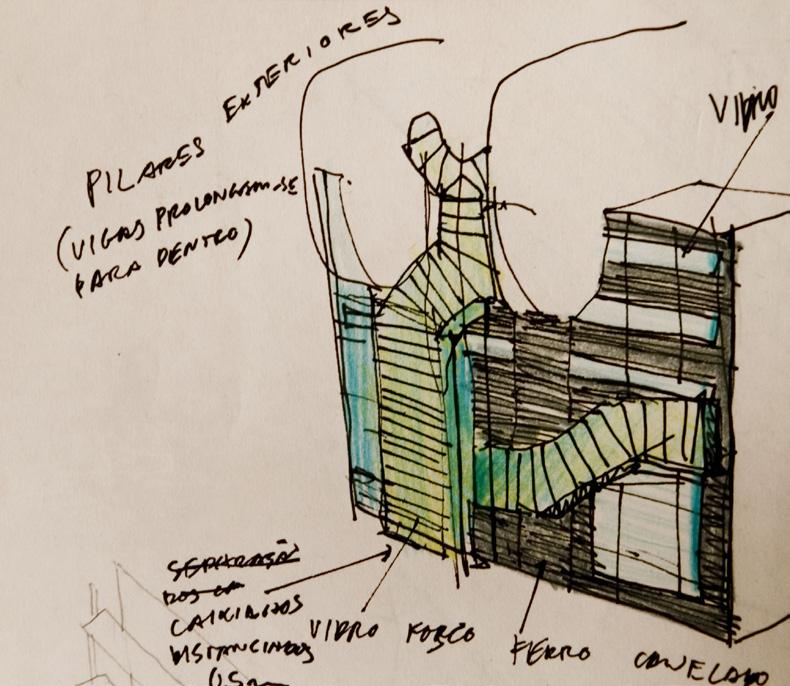 PILARES EXTERIORES
(VIGAS PROLONGAM-SE
PARA DENTRO)
VIDRO
SEPARAÇÃO
DOS
CAIXILHOS
DISTANCIADOS
0.5m
VIDRO FOSCO
FERRO CANELADO